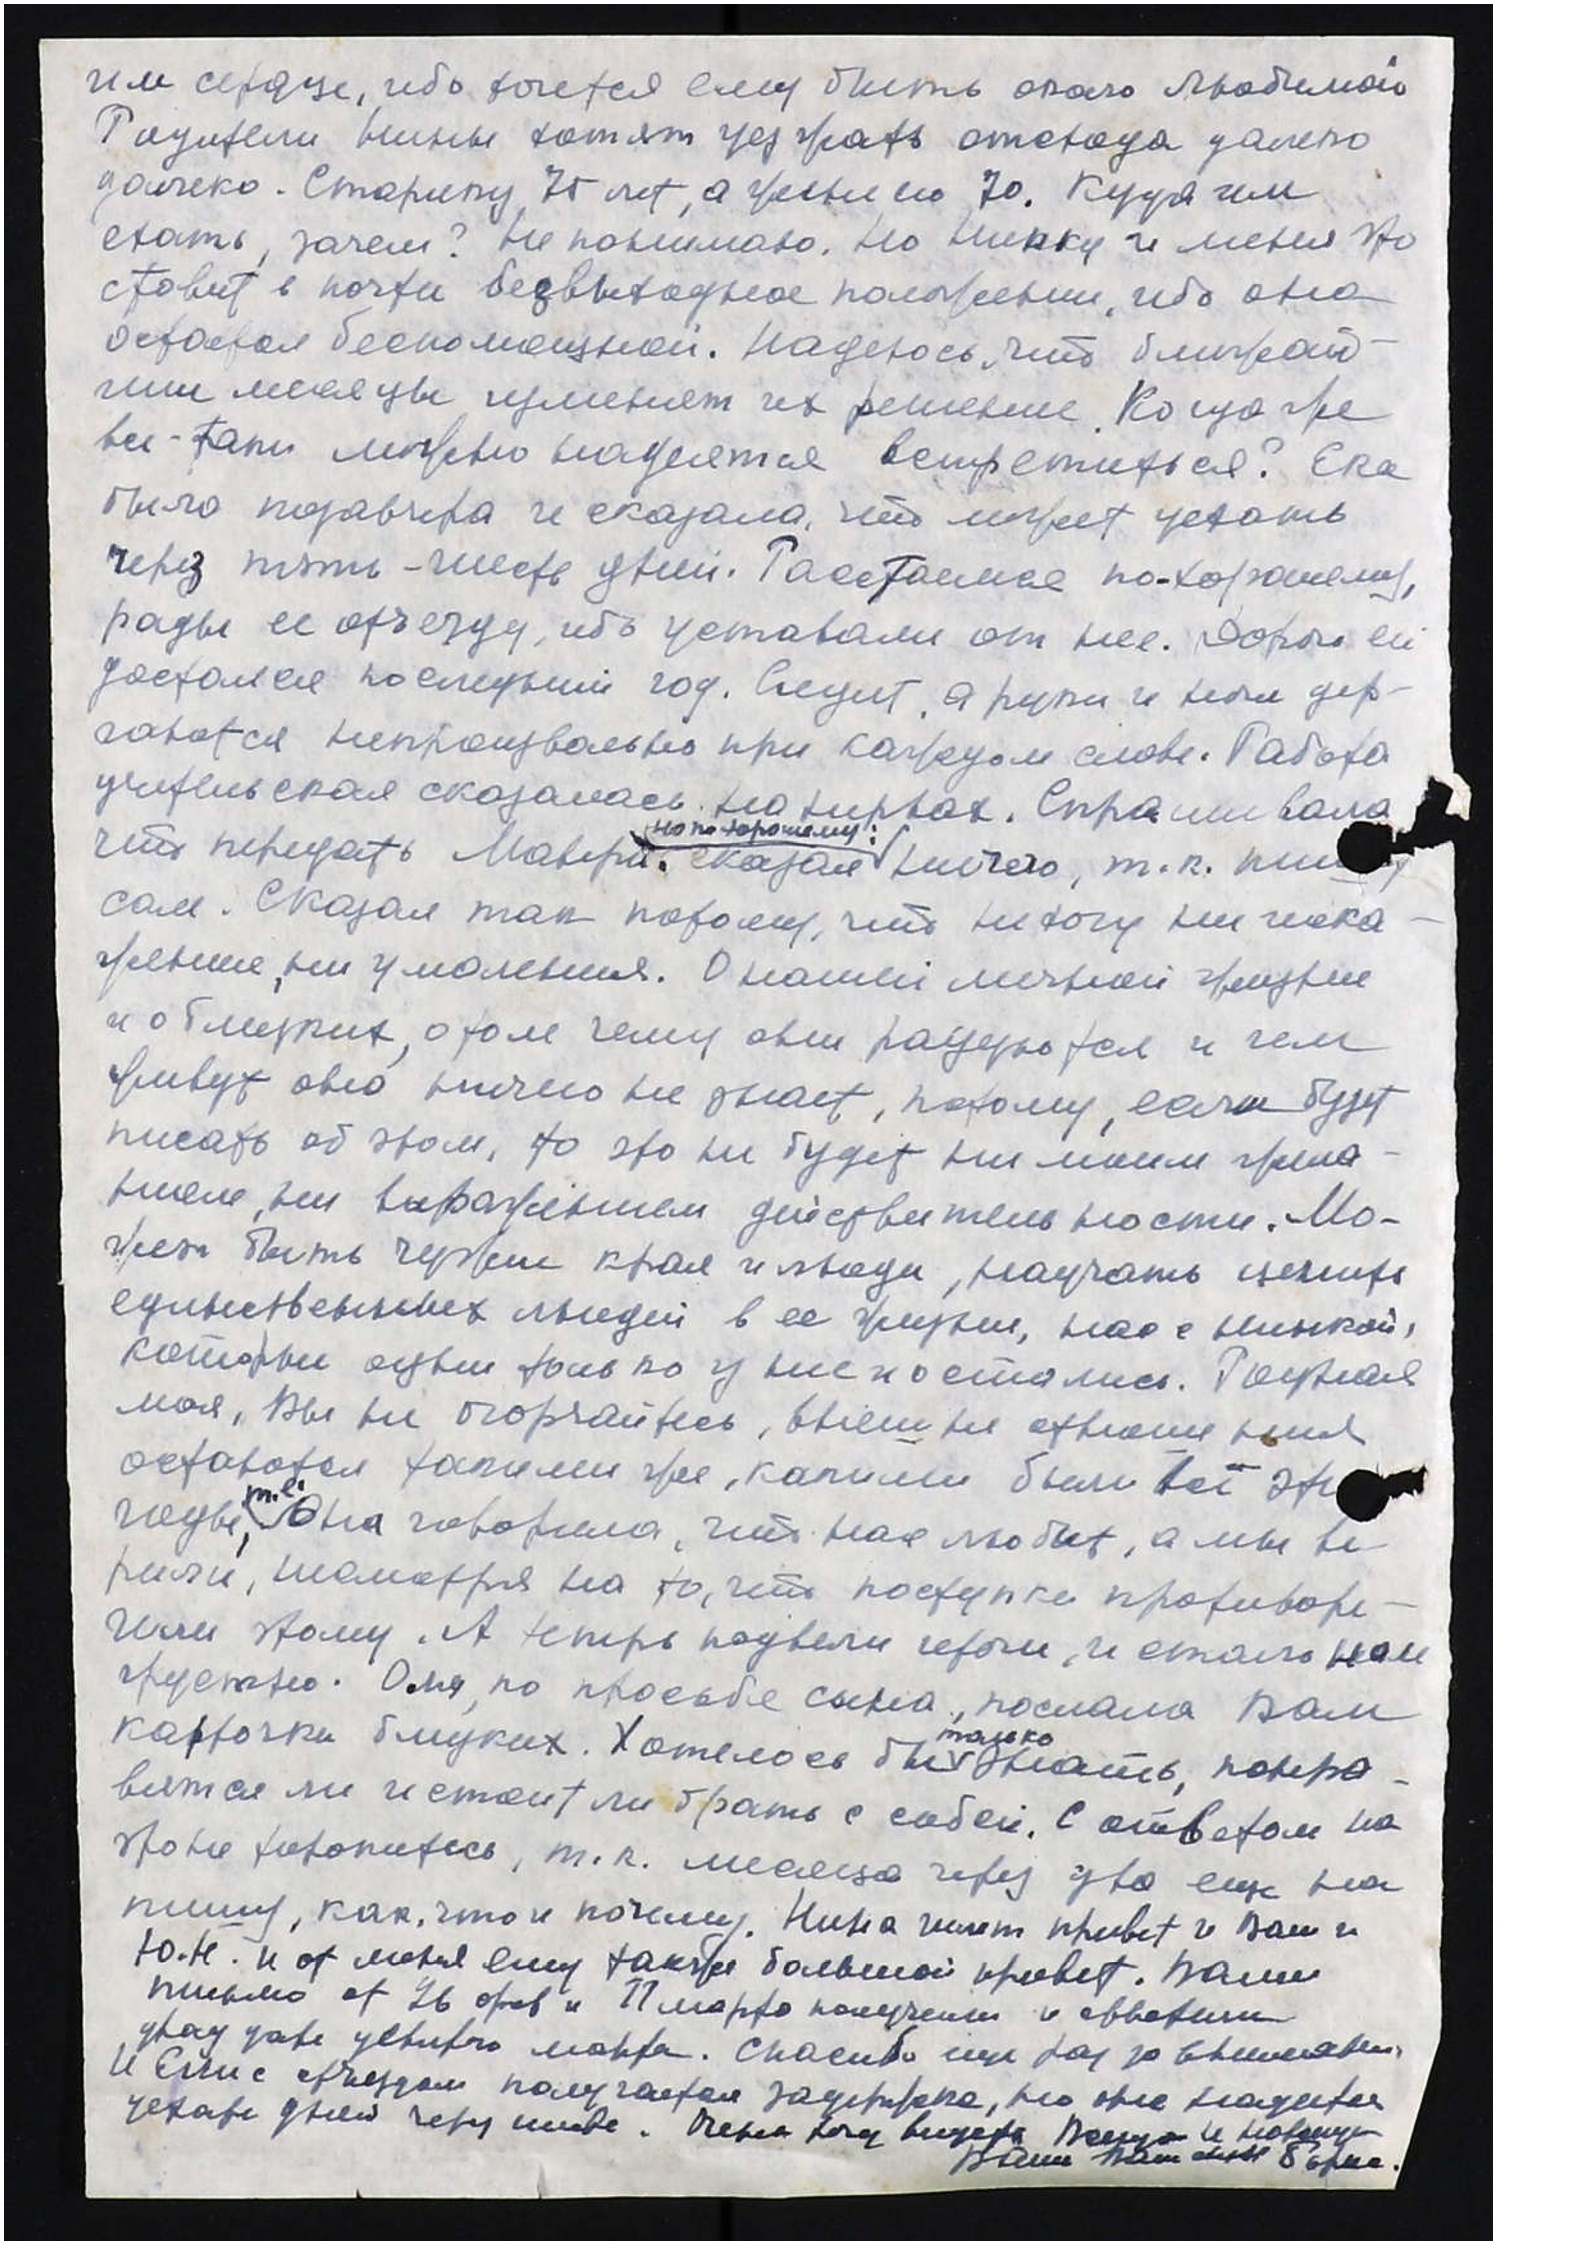 им сердце, ибо хочется ему быть около любимой
Родители Нины хотят уезжать отсюда далеко
далеко. Старику 75 лет, а жене его 70. Куда им
ехать, зачем? Не понимаю. Но Нинку и меня это
ставит в почти безвыходное положение, ибо она
остается беспомощной. Надеюсь, что ближай-
шие месяцы изменят их решение. Когда же
все-таки можно надеятся встретиться? Ека
была позавчера и сказала, что может уехать
через пять-шесть дней. Расстаемся по-хорошему,
рады ее отъезду, ибо уставали от нее. Дорого ей
достался последний год. Сидит, а руки и ноги дер-
гаются непроизвольно при каждом слове. Работа
учительская сказалась на нервах. Спрашивала
что передать Матери. Сказал но по хорошему: ничего, т.к. пишу
сам. Сказал так потому, что не хочу ни иска-
жения, ни умаления. О нашей личной жизни
и о близких, о том чему они радуются и чем
живут она ничего не знает, потому, если будет
писать об этом, то это не будет ни моим жела-
нием, ни выражением действительности. Мо-
жет быть чужие края и люди, научать ценить
единственных людей в ее жизни, нас с Нинкой,
которые одни только у нее и остались. Родная
моя, Вы не огорчайтесь, внешне отношения
остаются такими же, какими были все эти
годы, т.е. Она говорила, что нас любит, а мы ве
рили, несмотря на то, что поступки противоре-
чили этому. А теперь подвели итоги, и стало нам
грустно. Оля, по просьбе сына, послала Вам
карточки близких. Хотелось бы только знать, понра-
вятся ли и стоит ли брать с собой. С ответом на
это не торопитесь, т.к. месяца через два еще на
пишу, как, что и почему. Нина шлет привет и Вам и
Ю.Н. и от меня ему также большой привет. Ваши
письма от 26 фев и 11 марта получили и ответили
двадцать девятого марта. Спасибо еще раз за внимание.
И Ели с отъездом получается задержка, но она надеется
уехать дней через. Очень хочу видеть Вашу и
Ваш Ваш сын Борис.